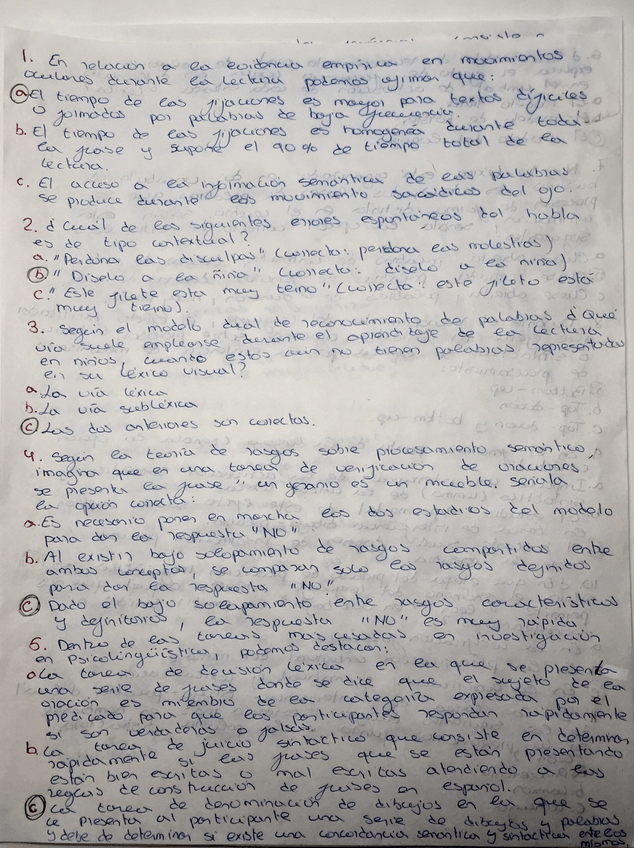 1. En relación a la evidencia empírica en movimientos
oculares durante la lectura podemos afirmar que:
a. El tiempo de las fijaciones es mayor para textos difíciles
o formados por palabras de baja frecuencia.
b. El tiempo de las fijaciones es homogenea durante toda
la frase y supone el 90% de tiempo total de la
lectura.
c. El acceso a la información semántica de las palabras
se produce durante los movimiento sacádicos del ojo.
2. ¿Cuál de los siguientes errores espontáneos del habla
es de tipo contextual?
a. "Perdona las disculpas" (correcto: perdona las molestias)
b. "Diselo a la ñiña" (correcto: diselo a la niña)
c. "Este filete esta muy terno" (correcta: este filete está
muy tierno).
3. Según el modelo dual de reconocimiento de palabras ¿Qué
vía suele emplearse durante el aprendizaje de la lectura
en niños, cuando estos aún no tienen palabras representadas
en su léxico visual?
a. La vía léxica
b. La vía subléxica
c. Las dos anteriores son correctas.
4. Según la teoría de rasgos sobre procesamiento semántico,
imagina que en una tarea de verificación de oraciones
se presenta la frase "un geranio es un mueble. señala
la opción correcta:
a. Es necesario poner en marcha los dos estadios del modelo
para dar la respuesta "NO"
b. Al existir bajo solapamiento de rasgos compartidos entre
ambos conceptos, se comparan solo los rasgos definidos
para dar la respuesta "NO"
c. Dado el bajo solapamiento entre rasgos característicos
y definitorios, la respuesta "NO" es muy rápida
5. Dentro de las tareas mas usadas en investigación
en Psicolingüística, podemos destacar:
a. La tarea de decisión léxica en la que se presenta
una serie de frases donde se dice que el sujeto de la
oración es miembro de la categoría expresada por el
predicado para que los participantes respondan rapidamente
si son verdaderas o falsas.
b. La tarea de juicio sintáctico que consiste en determinar
rápidamente si las frases que se están presentando
están bien escritas o mal escritas atendiendo a las
reglas de construcción de frases en español.
c. La tarea de denominación de dibujos en la que se
le presenta al participante una serie de dibujos y palabras
y debe de determinar si existe una concordancia semántica y sintáctica entre los
mismos.